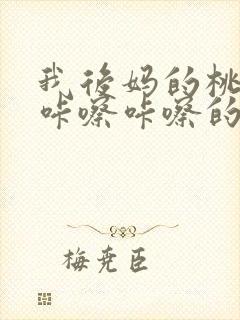 我后妈的桃
咔嚓咔嚓的
梅尧臣